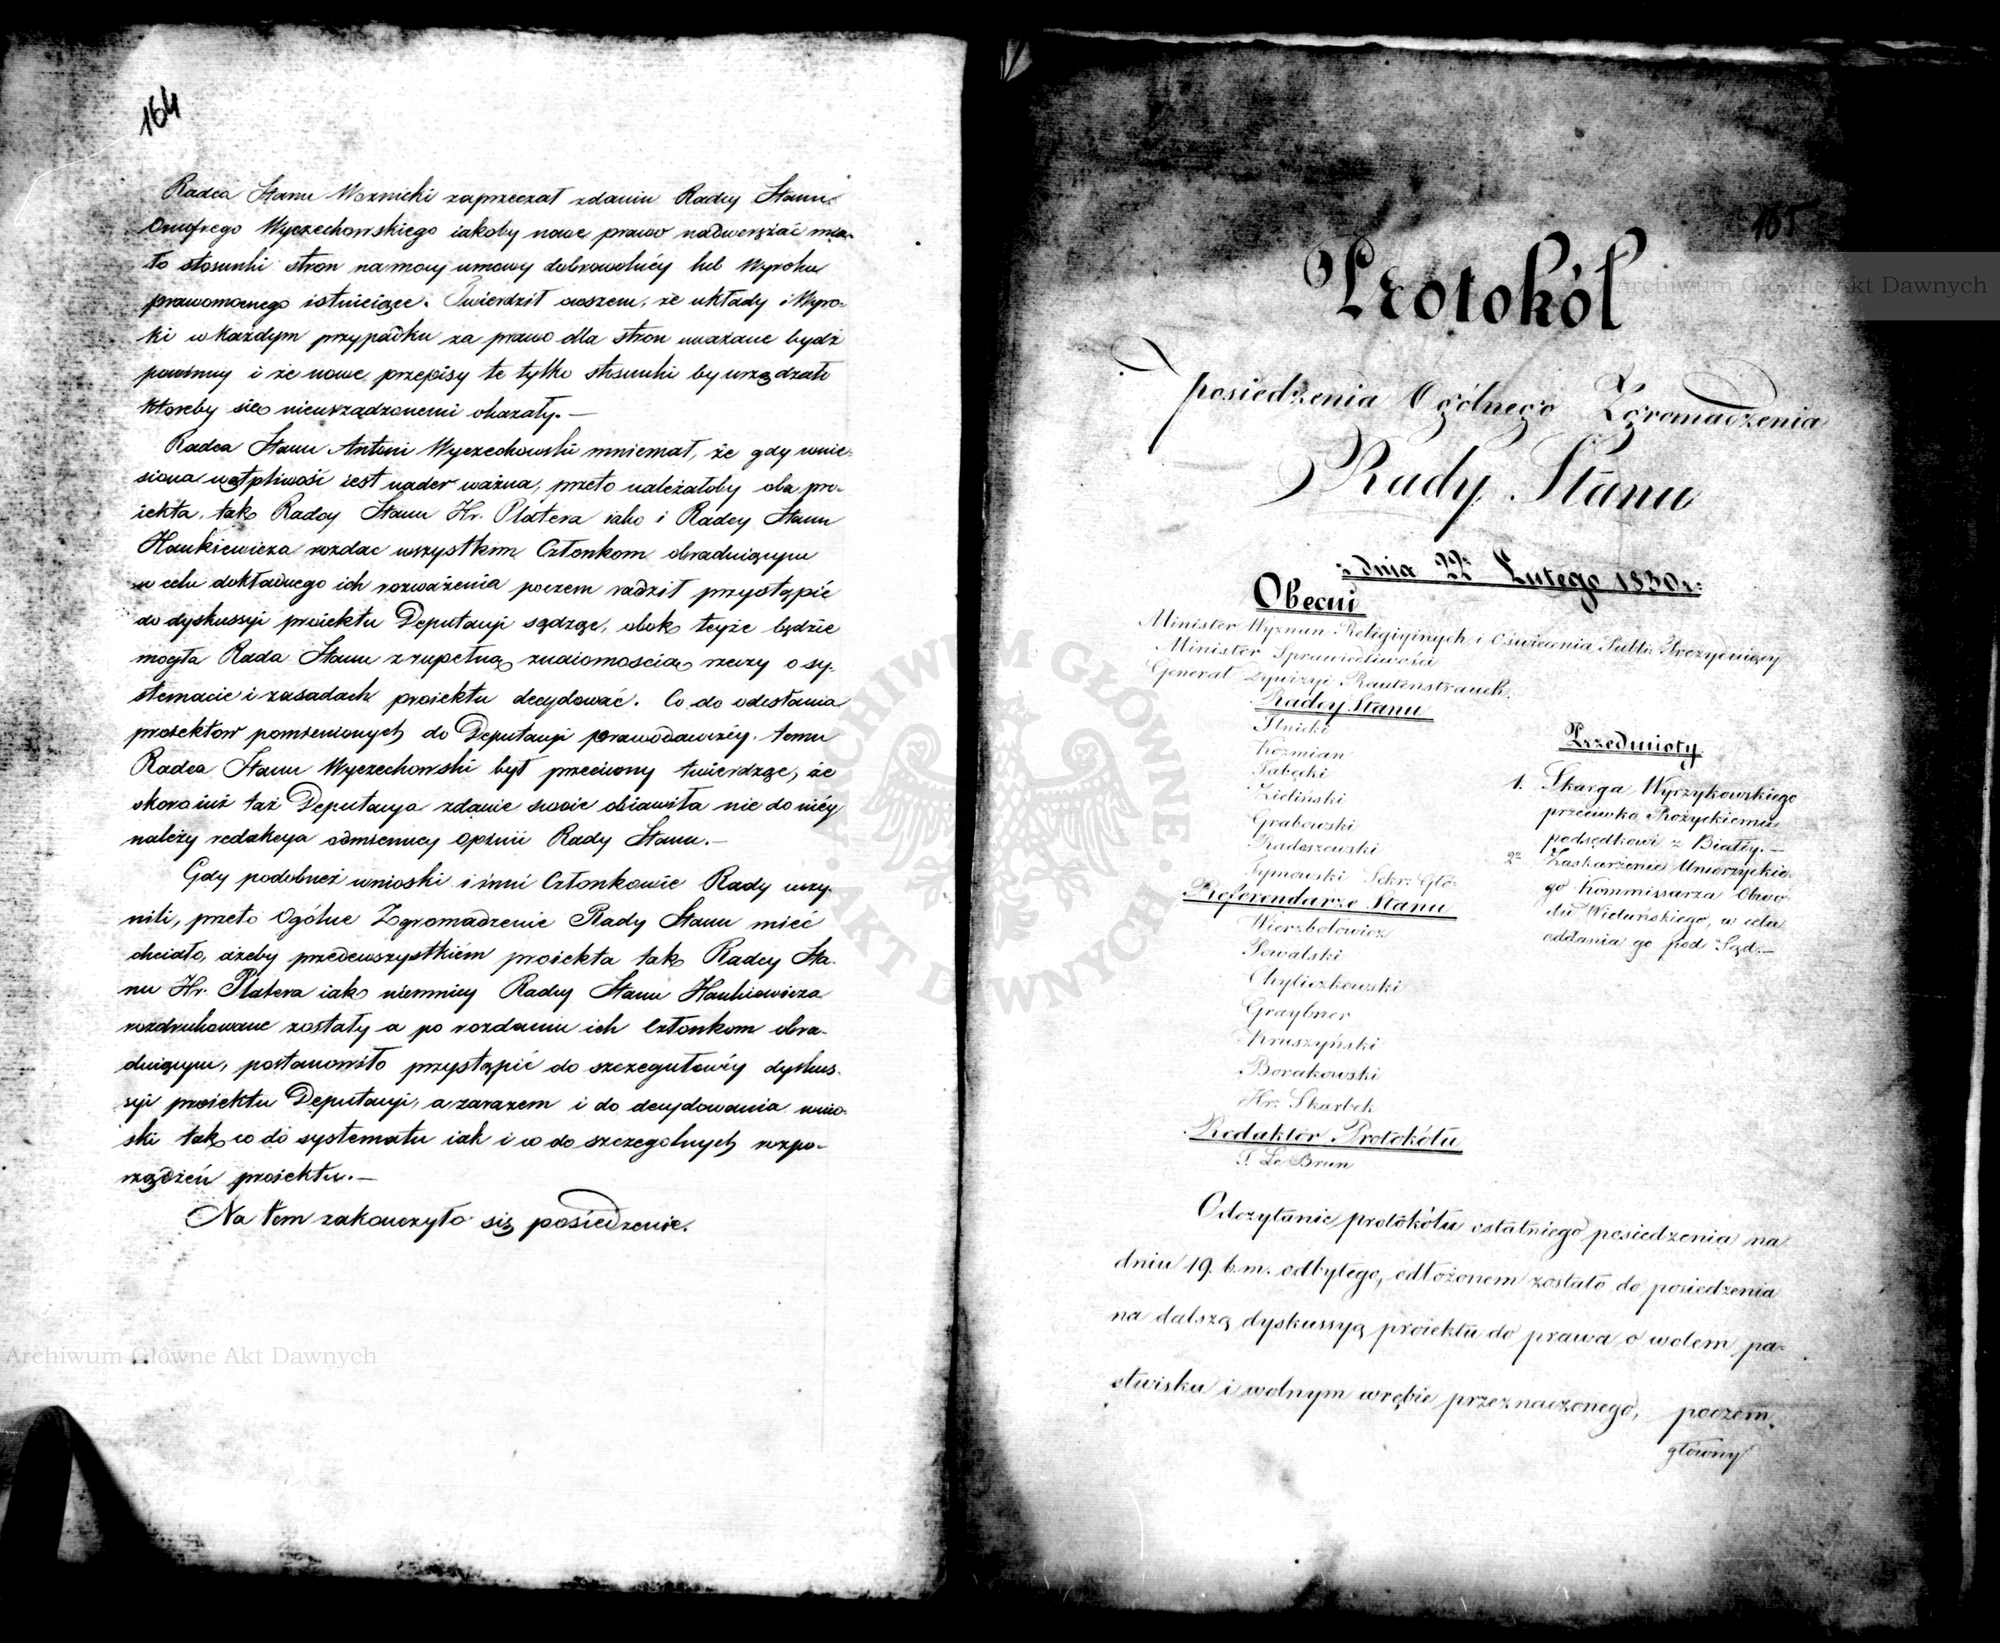 164
Radca Stanu Woznicki zaprzeczał zdaniu Radcy Stanu
Onufrego Wyczechowskiego iakoby nowe prawo nadwerężać mia-
ło stosunki stron na mocy umowy dobrowolnéy lub Wyroku
prawomocnego istnieiące. Twierdził owszem, że układy i Wyro-
ki w każdym przypadku za prawo dla stron uważane bydź
powinny i że nowe przepisy te tylko stosunki by urządzało
któreby się nieurządzonemi okazały. —
Radca Stanu Antoni Wyczechowski mniemał, że gdy wnie-
siona wątpliwość iest nader ważna, przeto należałoby oba pro-
iekta, tak Radcy Stanu Hr. Platera iako i Radcy Stanu
Hankiewicza rozdać wszystkim Członkom obraduiącym
w celu dokładnego ich rozważenia poczem radził przystąpić
do dyskussyi proiektu Deputacyi sądząc, obok teyże będzie
mogła Rada Stanu z zupełną znaiomością rzeczy o sy-
stemacie i zasadach proiektu decydować. Co do odesłania
proiektow pomienionych do Deputacyi prawodawczéy, temu
Radca Stanu Wyczechowski był przeciwny twierdząc, że
skoro iuż taż Deputacya zdanie swoie obiawiła nie do niéy
należy redakcya odmienney Opinii Rady Stanu. —
Gdy podobneż wnioski i inni Członkowie Rady uczy-
nili, przeto Ogólne Zgromadzenie Rady Stanu mieć
chciało, ażeby przedewszystkiém proiekta tak Radcy Sta-
nu Hr. Platera iak niemniey Radcy Stanu Hankiewicza
rozdrukowane zostały a po rozdaniu ich Członkom obra-
duiącym, postanowiło przystąpić do szczegułowéy dyskus-
syi proiektu Deputacyi, a zarazem i do decydowania wnio-
ski tak co do systematu iak i co do szczegolnych rozpo-
rządzeń proiektu. —
Na tem zakonczyło się posiedzenie.
Archiwum Główne Akt Dawnych
ARCHIWUM GŁÓWNE AKT DAWNYCH
165
Archiwum Główne Akt Dawnych
Protokół
posiedzenia Ogólnego Zgromadzenia
Rady Stanu
z dnia 22 Lutego 1830 r:
Obecni
Minister Wyznan Religiyinych i Oświecenia Publi: Prezyduiący
Minister Sprawiedliwości
Generał Dywizyi Rautenstrauch.
Radcy Stanu
Ilnicki
Koźmian
Tabęcki
Zieliński
Grabowski
Radoszewski
Tymowski Sekr: Głó:
Referendarze Stanu
Wierzbołowicz
Powalski
Chyliczkowski
Graybner
Kruszyński
Borakowski
Hr: Skarbek
Redaktór Protokółu
T. Le Brun
Przedmioty
1. Skarga Wyrzykowskiego
przeciwko Różyckiemu
podsędkowi z Białły. —
2º Zaskarżenie Umorzyckie-
go Kommissarza Obwo-
du Wieluńskiego, w celu
oddania go pod Sąd. —
Odczytanie protokółu ostatniego posiedzenia na
dniu 19. b. m. odbytego, odłożonem zostało do posiedzenia
na dalszą dyskussyą proiektu do prawa o wolem pa-
stwisku i wolnym wrębie przeznaczonego, poczem
główny